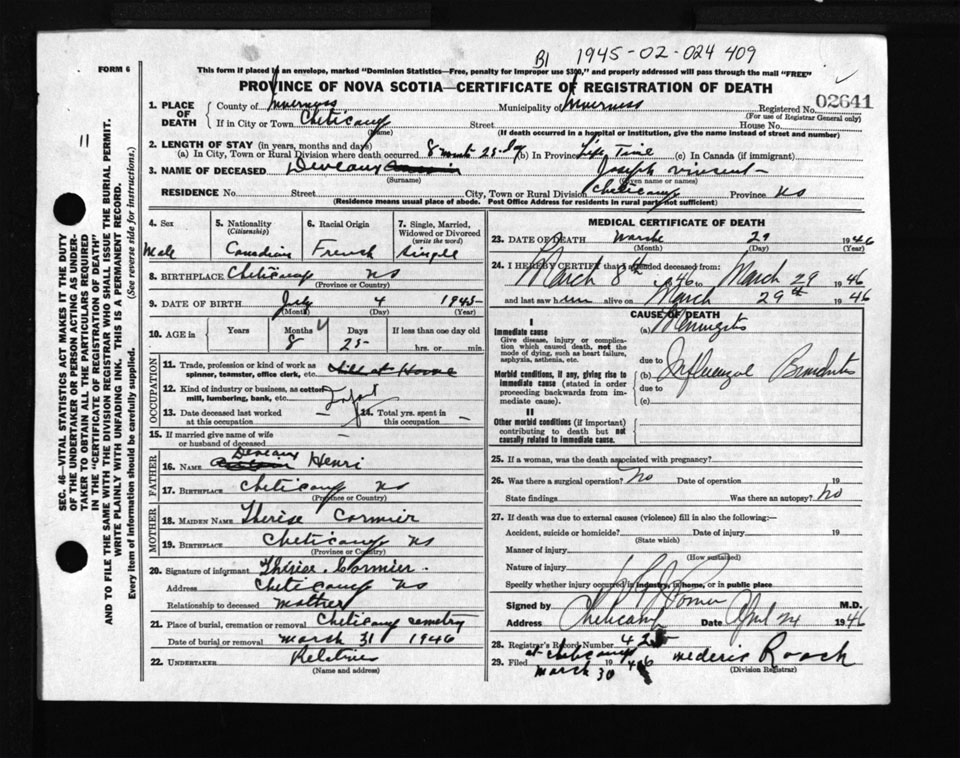 B1 1945-02-024 409
FORM 6
This form if placed in an envelope, marked "Dominion Statistics—Free, penalty for improper use $300," and properly addressed will pass through the mail "FREE"
PROVINCE OF NOVA SCOTIA—CERTIFICATE OF REGISTRATION OF DEATH
SEC. 46—VITAL STATISTICS ACT MAKES IT THE DUTY
OF THE UNDERTAKER OR PERSON ACTING AS UNDER-
TAKER TO OBTAIN ALL THE PARTICULARS REQUIRED
IN THE "CERTIFICATE OF REGISTRATION OF DEATH"
AND TO FILE THE SAME WITH THE DIVISION REGISTRAR WHO SHALL ISSUE THE BURIAL PERMIT.
WRITE PLAINLY WITH UNFADING INK. THIS IS A PERMANENT RECORD.
Every item of information should be carefully supplied. (See reverse side for instructions.)
11
1. PLACE OF DEATH County of Inverness Municipality of Inverness Registered No. 02641
(For use of Registrar General only)
If in City or Town Cheticamp Street House No.
(Name) (If death occurred in a hospital or institution, give the name instead of street and number)
2. LENGTH OF STAY (in years, months and days)
(a) In City, Town or Rural Division where death occurred 8 mont 25 day (b) In Province Life Time (c) In Canada (if immigrant)
3. NAME OF DECEASED Deveaux Joseph Vincent
(Surname) (Given name or names)
RESIDENCE No. Street City, Town or Rural Division Cheticamp Province NS
(Residence means usual place of abode. Post Office Address for residents in rural parts not sufficient)
4. Sex Male
5. Nationality (Citizenship) Canadian
6. Racial Origin French
7. Single, Married, Widowed or Divorced (write the word) Single
8. BIRTHPLACE Cheticamp NS
(Province or Country)
9. DATE OF BIRTH July 4 1945
(Month) (Day) (Year)
10. AGE in Years Months Days If less than one day old
8 25 hrs. or min.
OCCUPATION
11. Trade, profession or kind of work as
spinner, teamster, office clerk, etc.
12. Kind of industry or business, as cotton
mill, lumbering, bank, etc. Infant
13. Date deceased last worked at this occupation — 14. Total yrs. spent in this occupation —
15. If married give name of wife
or husband of deceased —
FATHER
16. NAME Deveaux Henri
17. Birthplace Cheticamp NS
(Province or Country)
MOTHER
18. MAIDEN NAME Thérèse Cormier
19. BIRTHPLACE Cheticamp NS
(Province or Country)
20. Signature of informant Thérèse Cormier
Address Cheticamp NS
Relationship to deceased mother
21. Place of burial, cremation or removal Cheticamp cemetry
Date of burial or removal march 31 1946
22. UNDERTAKER Relatives
(Name and address)
MEDICAL CERTIFICATE OF DEATH
23. DATE OF DEATH Marche 29 1946
(Month) (Day) (Year)
24. I HEREBY CERTIFY that I attended deceased from:
March 8th 1946 to March 29 1946
and last saw him alive on March 29th 1946
CAUSE OF DEATH
I
Immediate cause (a) Meningitis
Give disease, injury or compli-
cation which caused death, not the
mode of dying, such as heart failure,
asphyxia, asthenia, etc. due to
Morbid conditions, if any, giving rise to
immediate cause (stated in order
proceeding backwards from im-
mediate cause). (b) Influenzal Bronchitis
due to
(c)
II
Other morbid conditions (if important)
contributing to death but not
causally related to immediate cause.
25. If a woman, was the death associated with pregnancy?
26. Was there a surgical operation? No Date of operation 19
State findings Was there an autopsy? No
27. If death was due to external causes (violence) fill in also the following:—
Accident, suicide or homicide? Date of injury 19
(State which)
Manner of injury
(How sustained)
Nature of injury
Specify whether injury occurred in industry, in home, or in public place
Signed by M.D.
Address Cheticamp Date April 24 1946
28. Registrar's Record Number 425
29. Filed at Cheticamp march 30 1946 Mederic Roach
(Division Registrar)